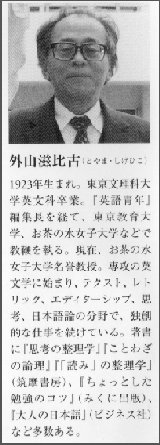 外山滋比古(とやま・しげひこ)
1923年生まれ。東京文理科大
学英文科卒業。『英語青年』
編集長を経て、東京教育大
学、お茶の水女子大学などで
教鞭を執る。現在、お茶の水
女子大学名誉教授。専攻の英
文学に始まり、テクスト、レト
リック、エディターシップ、思
考、日本語論の分野で、独創
的な仕事を続けている。著書
に『思考の整理学』『ことわざ
の論理』『「読み」の整理学』
(筑摩書房)、『ちょっとした
勉強のコツ』(みくに出版)、
『大人の日本語』(ビジネス社)
など多数ある。